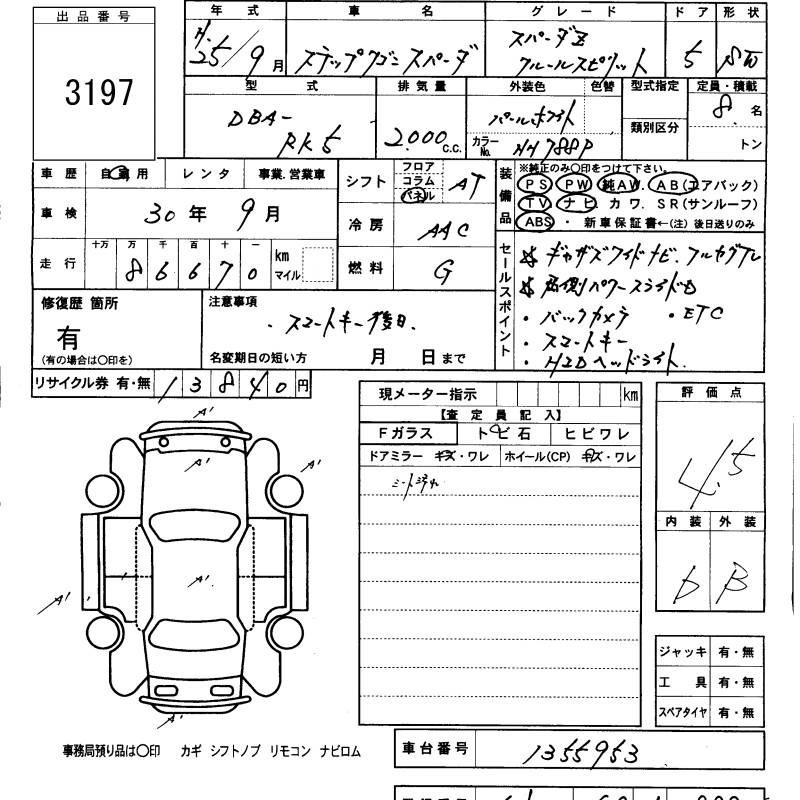 出品番号
3197
年式 車名 グレード ドア 形状
H.25/9月 ステップワゴンスパーダ スパーダZ クールスピリット 5 SW
型式 排気量 外装色 色替 型式指定 定員・積載
DBA-RK5 2.000c.c. パールホワイト 8.名
カラーNo. NH788P 類別区分 トン
車歴 自家用 レンタ 事業.営業車
シフト フロア コラム パネル AT
装備品
※純正のみ○印をつけて下さい。
PS PW 純AW. AB(エアバッグ)
TV ナビ カワ. SR(サンルーフ)
ABS ・ 新車保証書←(注)後日送りのみ
車検 30年9月
冷房 AAC
走行 十万 万 千 百 十 一
86670 km マイル
燃料 G
セールスポイント
☆ギャザズワイドナビ.フルセグTV
☆両側パワースライドD
・バックカメラ ・ETC
・スマートキー
・HIDヘッドライト.
修復歴 箇所
有
(有の場合は○印を)
注意事項
・スマートキー後日.
名変期日の短い方 月 日まで
リサイクル券 有・無 13840円
現メーター指示 km
【査定員記入】
Fガラス トビ石 ヒビワレ
ドアミラー キズ・ワレ ホイール(CP) キズ・ワレ
評価点
4.5
内装 外装
b B
A'
A' A'
A'
A'
A' A'
A'
ジャッキ 有・無
工具 有・無
スペアタイヤ 有・無
事務局預り品は○印 カギ シフトノブ リモコン ナビロム
車台番号 1355953